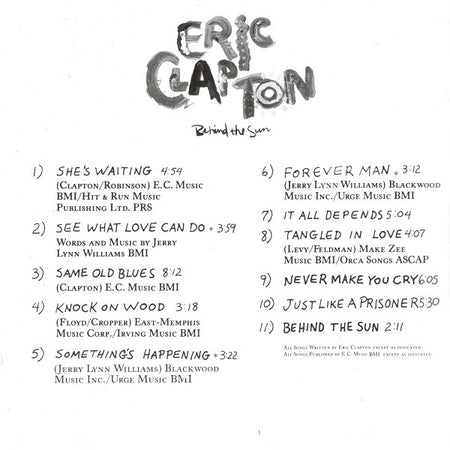 ERIC
CLAPTON
Behind the Sun
1) SHE'S WAITING 4:54
(Clapton/Robinson) E.C. Music
BMI/Hit & Run Music
Publishing Ltd. PRS
2) SEE WHAT LOVE CAN DO * 3:59
Words and Music by Jerry
Lynn Williams BMI
3) SAME OLD BLUES 8:12
(Clapton) E.C. Music BMI
4) KNOCK ON WOOD 3:18
(Floyd/Cropper) East-Memphis
Music Corp./Irving Music BMI
5) SOMETHING'S HAPPENING * 3:22
(Jerry Lynn Williams) Blackwood
Music Inc./Urge Music BMI
6) FOREVER MAN * 3:12
(Jerry Lynn Williams) Blackwood
Music Inc./Urge Music BMI
7) IT ALL DEPENDS 5:04
8) TANGLED IN LOVE 4:07
(Levy/Feldman) Make Zee
Music BMI/Orca Songs ASCAP
9) NEVER MAKE YOU CRY 6:05
10) JUST LIKE A PRISONER 5:30
11) BEHIND THE SUN 2:11
All Songs Written by Eric Clapton except as indicated.
All Songs Published by E.C. Music BMI except as indicated.